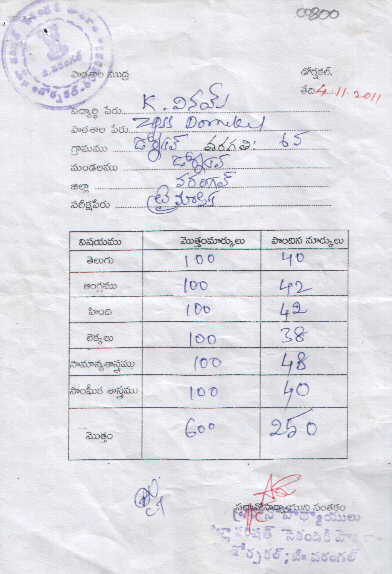 00800
పాఠశాల ముద్ర
డోర్నకల్,
తేది 4.11.2011
విద్యార్థి పేరు K. వినయ్
పాఠశాల పేరు ZPSS Dornakal
గ్రామము డోర్నకల్ తరగతి:
మండలము డోర్నకల్
జిల్లా వరంగల్
పరీక్షపేరు
విషయము మొత్తంమార్కులు పొందిన మార్కులు
తెలుగు 100 40
ఆంగ్లము 100 42
హింది 100 42
లెక్కలు 100 38
సామాన్యశాస్త్రము 100 48
సాంఘీక శాస్త్రము 100 40
మొత్తం 600 250
ప్రధానోపాధ్యాయుని సంతకం
ప్రధానోపాధ్యాయులు
జిల్లా పరిషత్ సెకండరి
డోర్నకల్; జి॥ వరంగల్